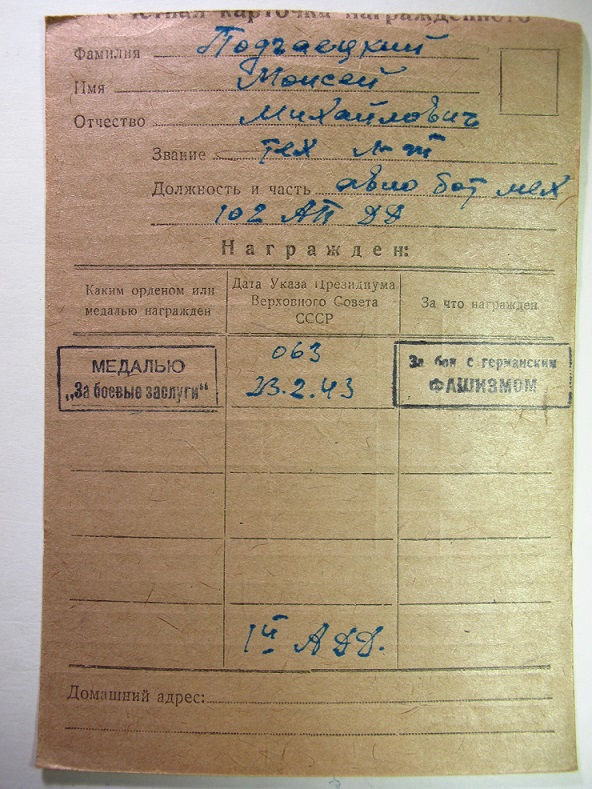 Учетная карточка награжденного
Фамилия Подгаецкий
Имя Моисей
Отчество Михайлович
Звание тех л-т
Должность и часть авио бот мех
102 АП ДД
Награжден:
Каким орденом или медалью награжден
Дата Указа Президиума Верховного Совета СССР
За что награжден
МЕДАЛЬЮ
„За боевые заслуги“
063
23.2.43
За бои с германским
ФАШИЗМОМ
1й АДД.
Домашний адрес: